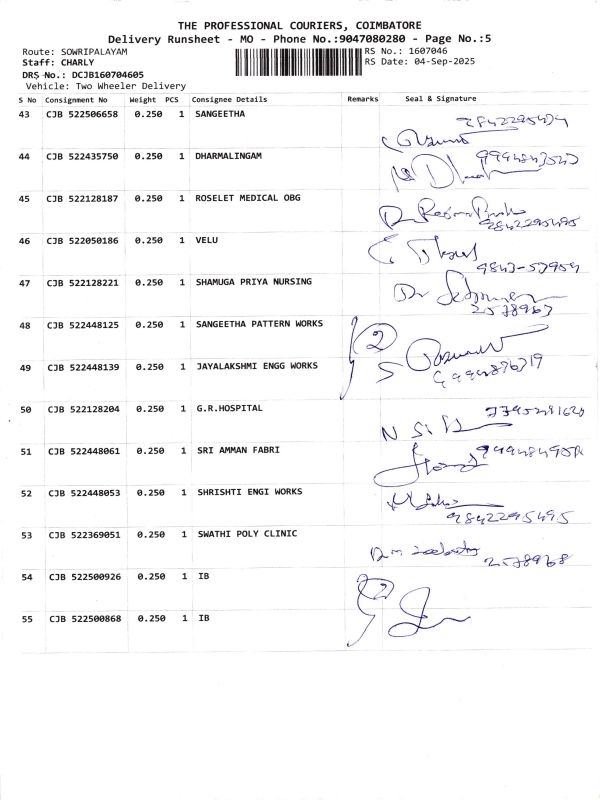 THE PROFESSIONAL COURIERS, COIMBATORE
Delivery Runsheet - MO - Phone No.:9047080280 - Page No.:5
Route: SOWRIPALAYAM RS No.: 1607046
Staff: CHARLY RS Date: 04-Sep-2025
DRS No.: DCJB160704605
Vehicle: Two Wheeler Delivery
S No Consignment No Weight PCS Consignee Details Remarks Seal & Signature
43 CJB 522506658 0.250 1 SANGEETHA
44 CJB 522435750 0.250 1 DHARMALINGAM
45 CJB 522128187 0.250 1 ROSELET MEDICAL OBG
9842295495
46 CJB 522050186 0.250 1 VELU
47 CJB 522128221 0.250 1 SHAMUGA PRIYA NURSING
Dr
2578963
48 CJB 522448125 0.250 1 SANGEETHA PATTERN WORKS
2
49 CJB 522448139 0.250 1 JAYALAKSHMI ENGG WORKS
50 CJB 522128204 0.250 1 G.R.HOSPITAL
51 CJB 522448061 0.250 1 SRI AMMAN FABRI
52 CJB 522448053 0.250 1 SHRISHTI ENGI WORKS
9842295495
53 CJB 522369051 0.250 1 SWATHI POLY CLINIC
2578968
54 CJB 522500926 0.250 1 IB
2
55 CJB 522500868 0.250 1 IB